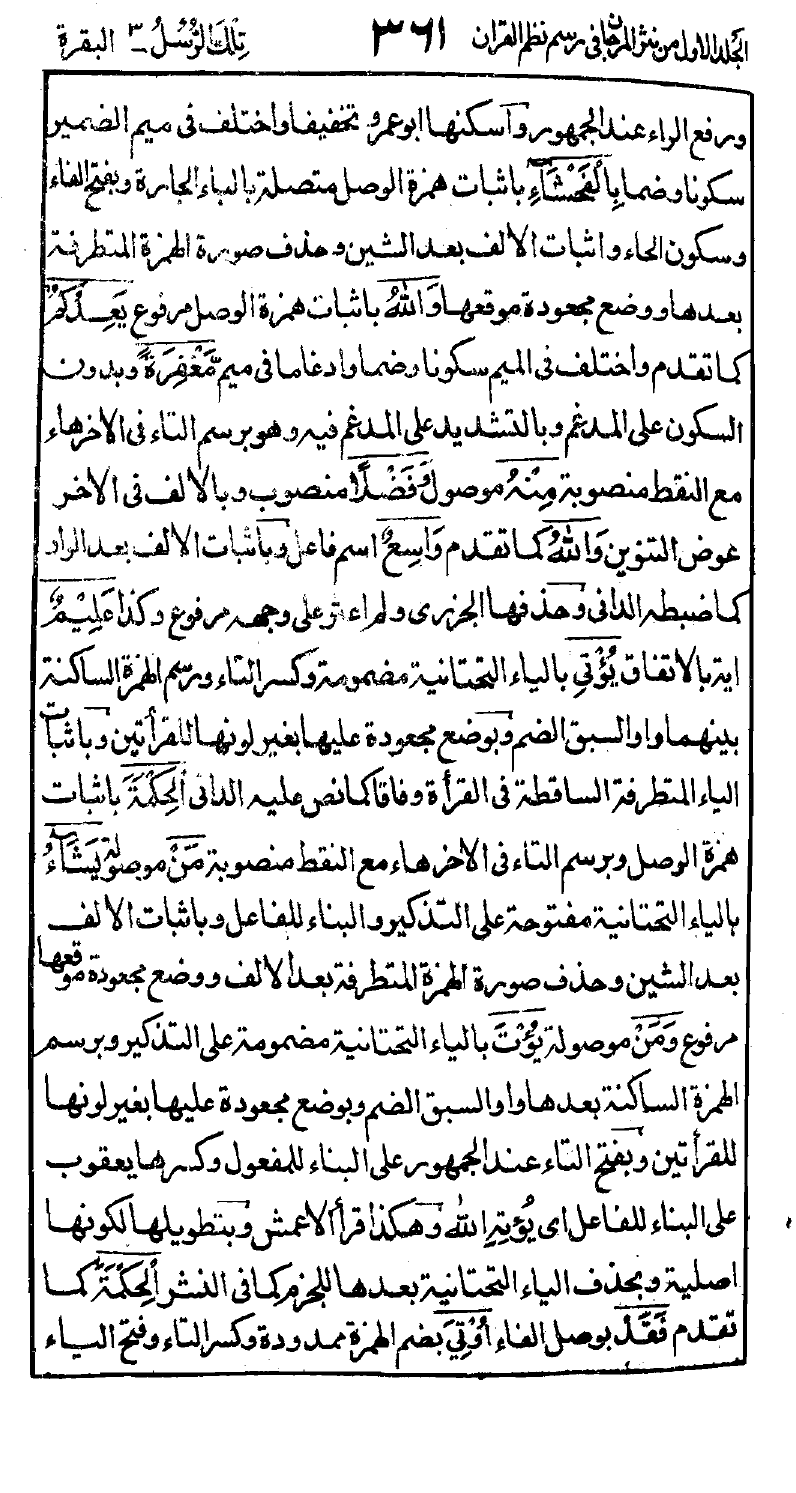 الجلد الاول من نثر المرجان فى رسم نظم القران ٣٦١ تِلْكَ الرُّسُلُ ٣ البقرة
ورفع الراء عند الجمهور وأسكنها ابوعمرو تخفيفا واختلف فى ميم الضمير
سكونا وضما بِالْفَحْشَآءِ باثبات همزة الوصل متصلة بالباء الجارة وبفتح الفاء
وسكون الحاء واثبات الالف بعد الشين وحذف صورة الهمزة المتطرفة
بعدها ووضع مجعودة موقعها وَاللهُ باثبات همزة الوصل مرفوع يَعِدُكُمْ
كما تقدم واختلف فى الميم سكونا وضما وادغاما فى ميم مَّغْفِرَةً وبدون
السكون على المدغم وبالتشديد على المدغم فيه وهو برسم التاء فى الاخر هاء
مع النقط منصوبة مِنْهُ موصول وَفَضْلًا منصوب وبالالف فى الاخر
عوض التنوين وَاللهُ كما تقدم وَاسِعٌ اسم فاعل وباثبات الالف بعد الواو
كما ضبطه الدانى وحذفها الجزرى ولم اعثر على وجهه مرفوع وكذا عَلِيْمٌ
اية بالاتفاق يُؤْتِي بالياء التحتانية مضمومة وكسر التاء ورسم الهمزة الساكنة
بينهما واوا لسبق الضم وبوضع مجعودة عليها بغير لونها للقرأتين وباثبات
الياء المتطرفة الساقطة فى القرأة وفاقا كما نص عليه الدانى اَلْحِكْمَةَ باثبات
همزة الوصل وبرسم التاء فى الاخر هاء مع النقط منصوبة مَنْ موصولة يَشَآءُ
بالياء التحتانية مفتوحة على التذكير والبناء للفاعل وباثبات الالف
بعد الشين وحذف صورة الهمزة المتطرفة بعد الالف ووضع مجعودة موقعها
مرفوع وَمَنْ موصولة يُؤْتَ بالياء التحتانية مضمومة على التذكير وبرسم
الهمزة الساكنة بعدها واوا لسبق الضم وبوضع مجعودة عليها بغير لونها
للقرأتين وبفتح التاء عند الجمهور على البناء للمفعول وكسرها يعقوب
على البناء للفاعل اى يُؤْتِهِ اللهُ وهكذا قرأ الاعمش وبتطويلها لكونها
اصلية وبحذف الياء التحتانية بعدها للجزم كما فى النشر اَلْحِكْمَةَ كما
تقدم فَقَدْ بوصل الفاء اُوْتِيَ بضم الهمزة ممدودة وكسر التاء وفتح الياء